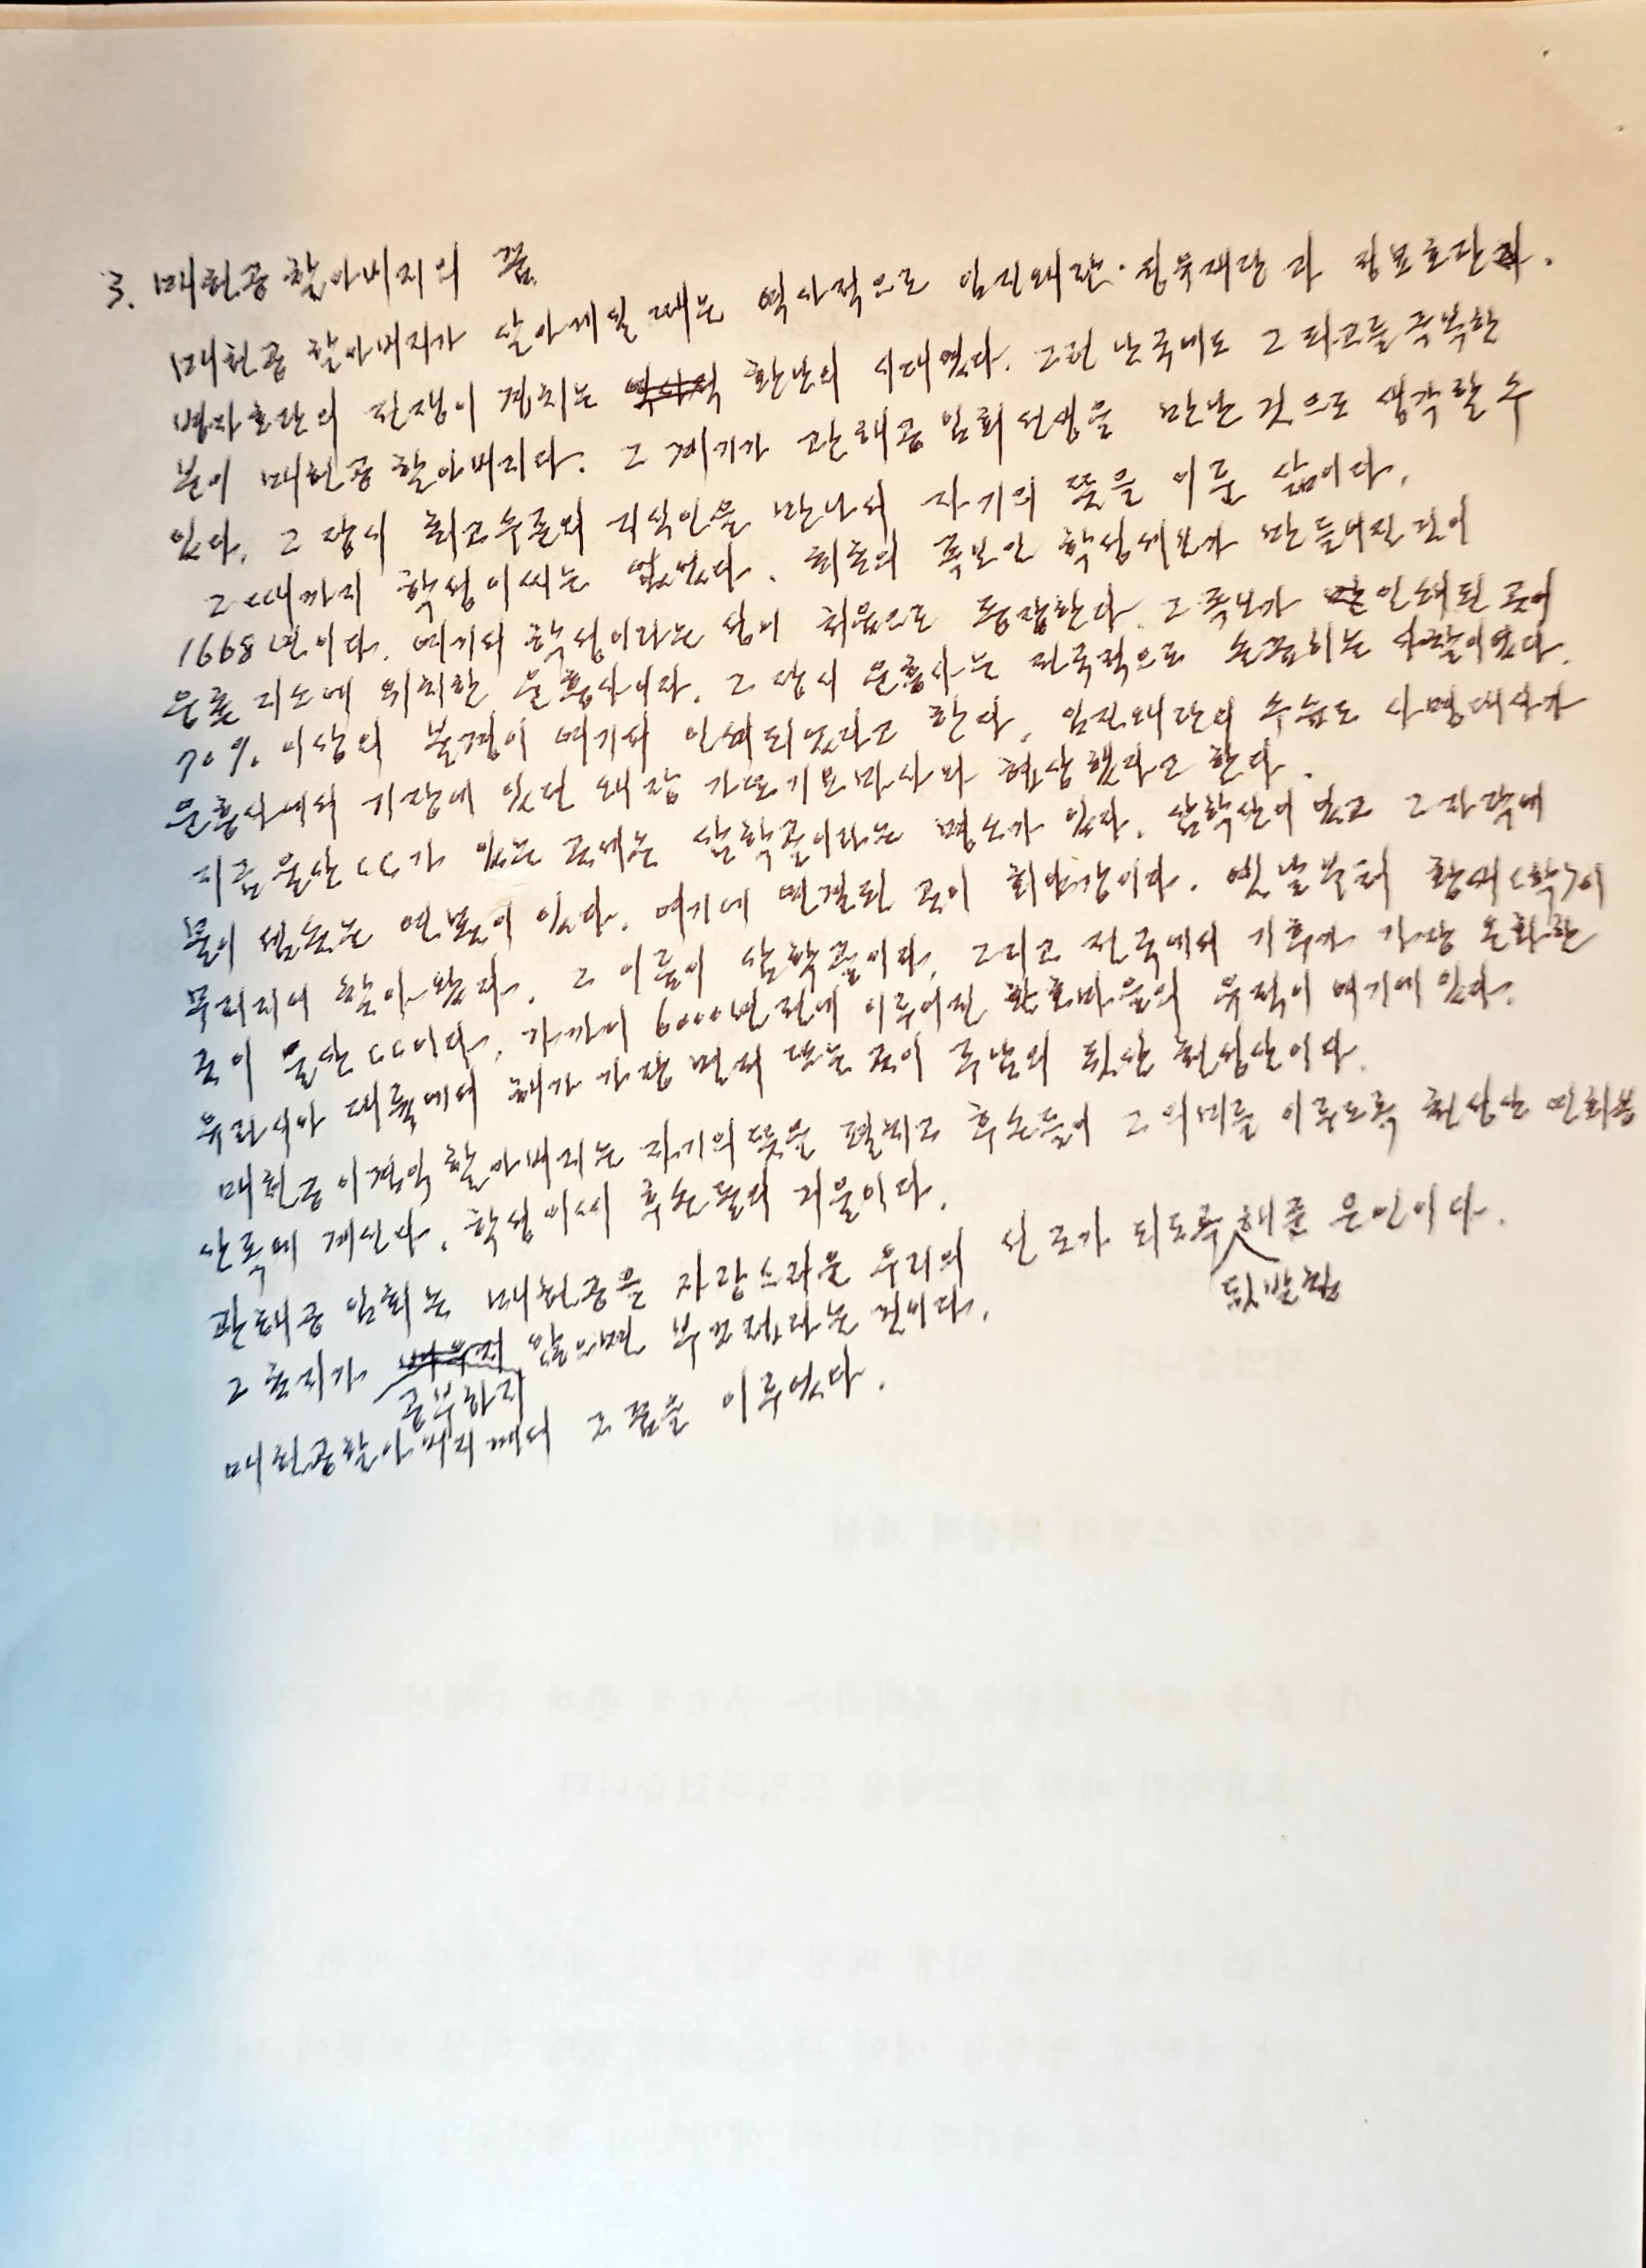 3.매헌공 할아버지의 꿈
매헌공 할아버지가 살아계실 때는 역사적으로 임진왜란·정유재란 과 정묘호란과.
병자호란의 전쟁이 겹치는 환난의 시대였다. 그런 난국에도 그 파고를 극복한
분이 매헌공 할아버지다. 그 계기가 관해공 임회선생을 만난 것으로 생각할 수
있다. 그 당시 최고수준의 지식인을 만나서 자기의 뜻을 이룬 삶이다.
그때까지 학성이씨는 없었다. 최초의 족보인 학성세보가 만들어진 것이
1668년이다. 여기서 학성이라는 성이 처음으로 등장한다. 그 족보가 인쇄된 곳이
웅촌 리소에 위치한 운흥사이다. 그 당시 운흥사는 전국적으로 손꼽히는 사찰이었다.
70% 이상의 불경이 여기서 인쇄되었다고 한다. 임진왜란의 수습도 사명대사가
운흥사에서 기장에 있던 왜장 가또기요마사와 협상했다고 한다.
지금 울산 CC가 있는 곳에는 삼학골이라는 명소가 있다. 삼학산이 있고 그자락에
물이 샘솟는 연못이 있다. 여기에 연결된 곳이 회야강이다. 옛날부터 황새(학)이
무리지어 찾아왔다. 그 이름이 삼학골이다. 그리고 전국에서 기후가 가장 온화한
곳이 울산 CC이다. 가까이 6000년전에 이루어진 환호마을의 유적이 여기에 있다.
유라시아 대륙에서 해가 가장 먼저 닿는 곳이 주남의 뒷산 천성산이다.
매헌공 이겸익 할아버지는 자기의 뜻을 펼치고 후손들이 그 의미를 이루도록 천성산
산록에 계신다. 학성이씨 후손들의 거울이다.
관해공 임회는 매헌공을 자랑스러운 우리의 선조가 되도록 뒷받침 해준 은인이다.
그 논리가 공부하지 않으면 부 라는 것이다.
매헌공할아버지께서 그 꿈을 이루었다.